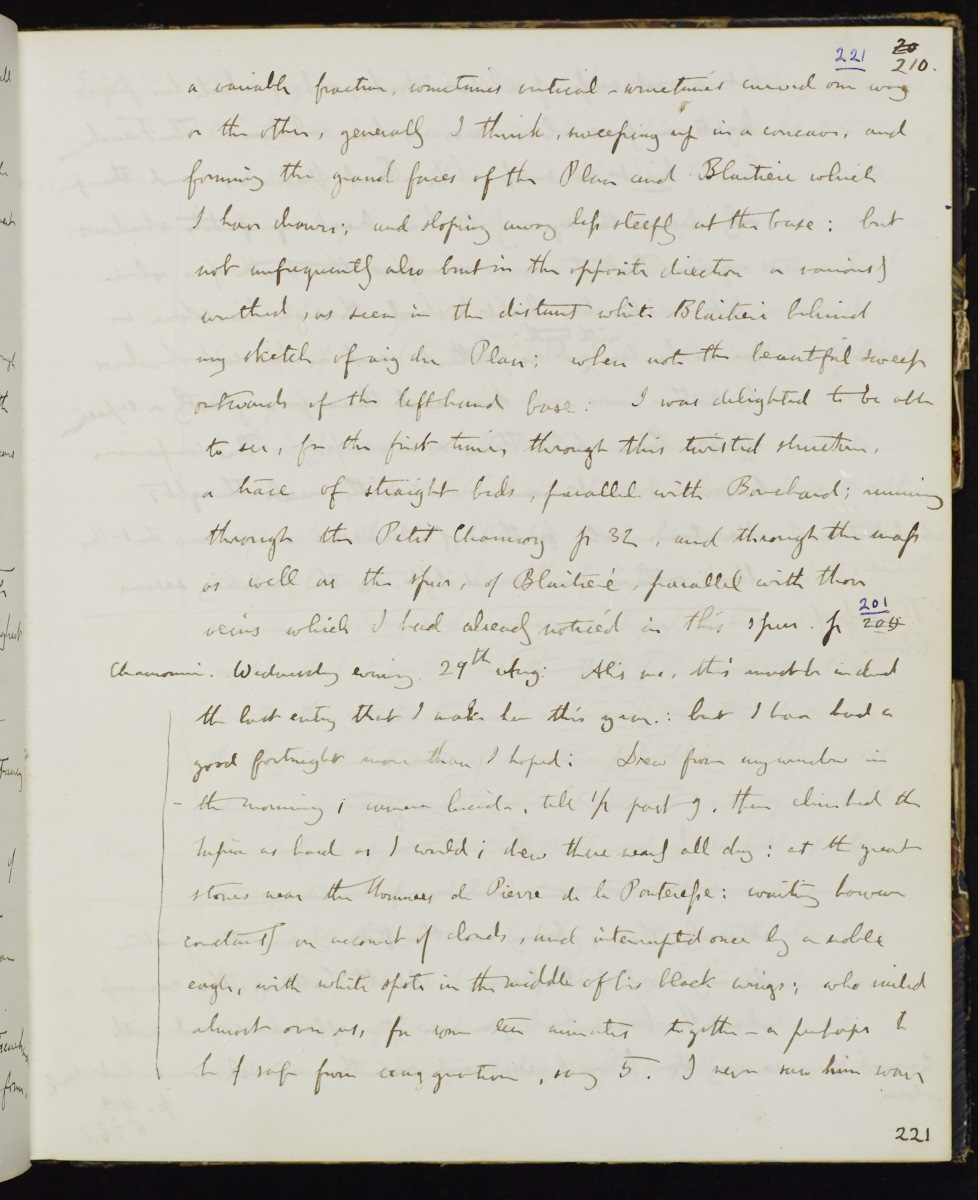 221 20
210.
a variable fraction, sometimes vertical - sometimes curved one way
or the other, generally I think, sweeping up in a concave, and
forming the grand faces of the Plan and Blaitiere which
I have drawn; and sloping away less steeply at the base: but
not unfrequently also bent in the opposite direction or variously
writhed, as seen in the distant white Blaitiere behind
my sketch of aig du Plan; when note the beautiful sweep
outwards of the lefthand base: I was delighted to be able
to see, for the first time, through this twisted structure,
a trace of straight beds, parallel with Bouchard; running
through the Petit Charmoz p 32, and through the mass
as well as the spur, of Blaitiere, parallel with those
201
veins which I had already noticed in this spur. p 204
Chamouni. Wednesday evening. 29th Aug: Ah's me, this must be indeed
the last entry that I make here this year.: but I have had a
good fortnight more than I hoped: Drew from my window in
- the morning; camera lucida, till 1/2 past 9, then climbed the
as hard as I could; drew there nearly all day: at the great
stones near the de Pierre de la : waiting however
constantly on account of clouds, and interrupted once by a noble
eagle, with white spots in the middle of his black wings; who sailed
almost over us, for some ten minutes together - or perhaps to
be safe from exaggeration, say 5. I never saw him wave
221